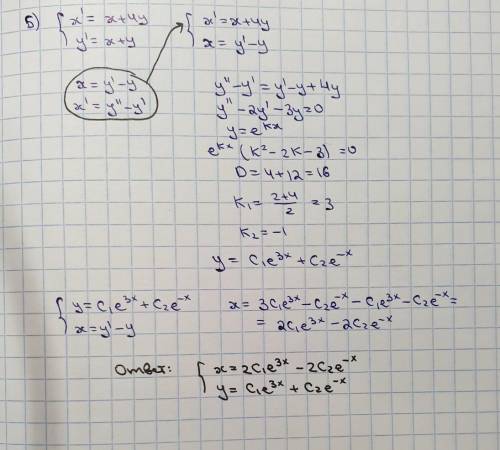 Б) { x' = x+4y { x'=x+4y
y' = x+y x = y'-y
x = y'-y
x' = y''-y'
y''-y' = y'-y+4y
y''-2y'-3y=0
y=e^{kx}
e^{kx}(k²-2k-3)=0
D=4+12=16
K₁= (2+4)/2 = 3
K₂=-1
y = C₁e^{3x}+C₂e^{-x}
{ y=C₁e^{3x}+C₂e^{-x} x= 3C₁e^{3x}-C₂e^{-x}-C₁e^{3x}-C₂e^{-x}=
x=y'-y = 2C₁e^{3x}-2C₂e^{-x}
Ответ: { x=2C₁e^{3x}-2C₂e^{-x}
y=C₁e^{3x}+C₂e^{-x}